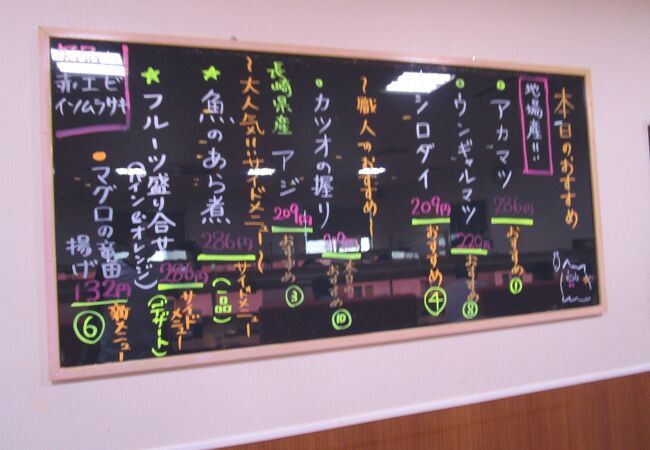 本日のおすすめ
地場産!!
アカマツ
286円
おすすめ
①
ウンギャルマツ
220円
おすすめ
⑧
シロダイ
209円
おすすめ
④
〜職人のおすすめ〜
カツオの握り
おすすめ
⑩
長崎県産
アジ
209円
おすすめ
③
〜大人気!!サイドメニュー〜
魚のあら煮
286円
サイドメニュー
(一品)
フルーツ盛り合せ
(パイン&オレンジ)
286円
サイドメニュー
(デザート)
マグロの竜田
揚げ
132円
新メニュー
⑥
赤エビ
イソムラサキ